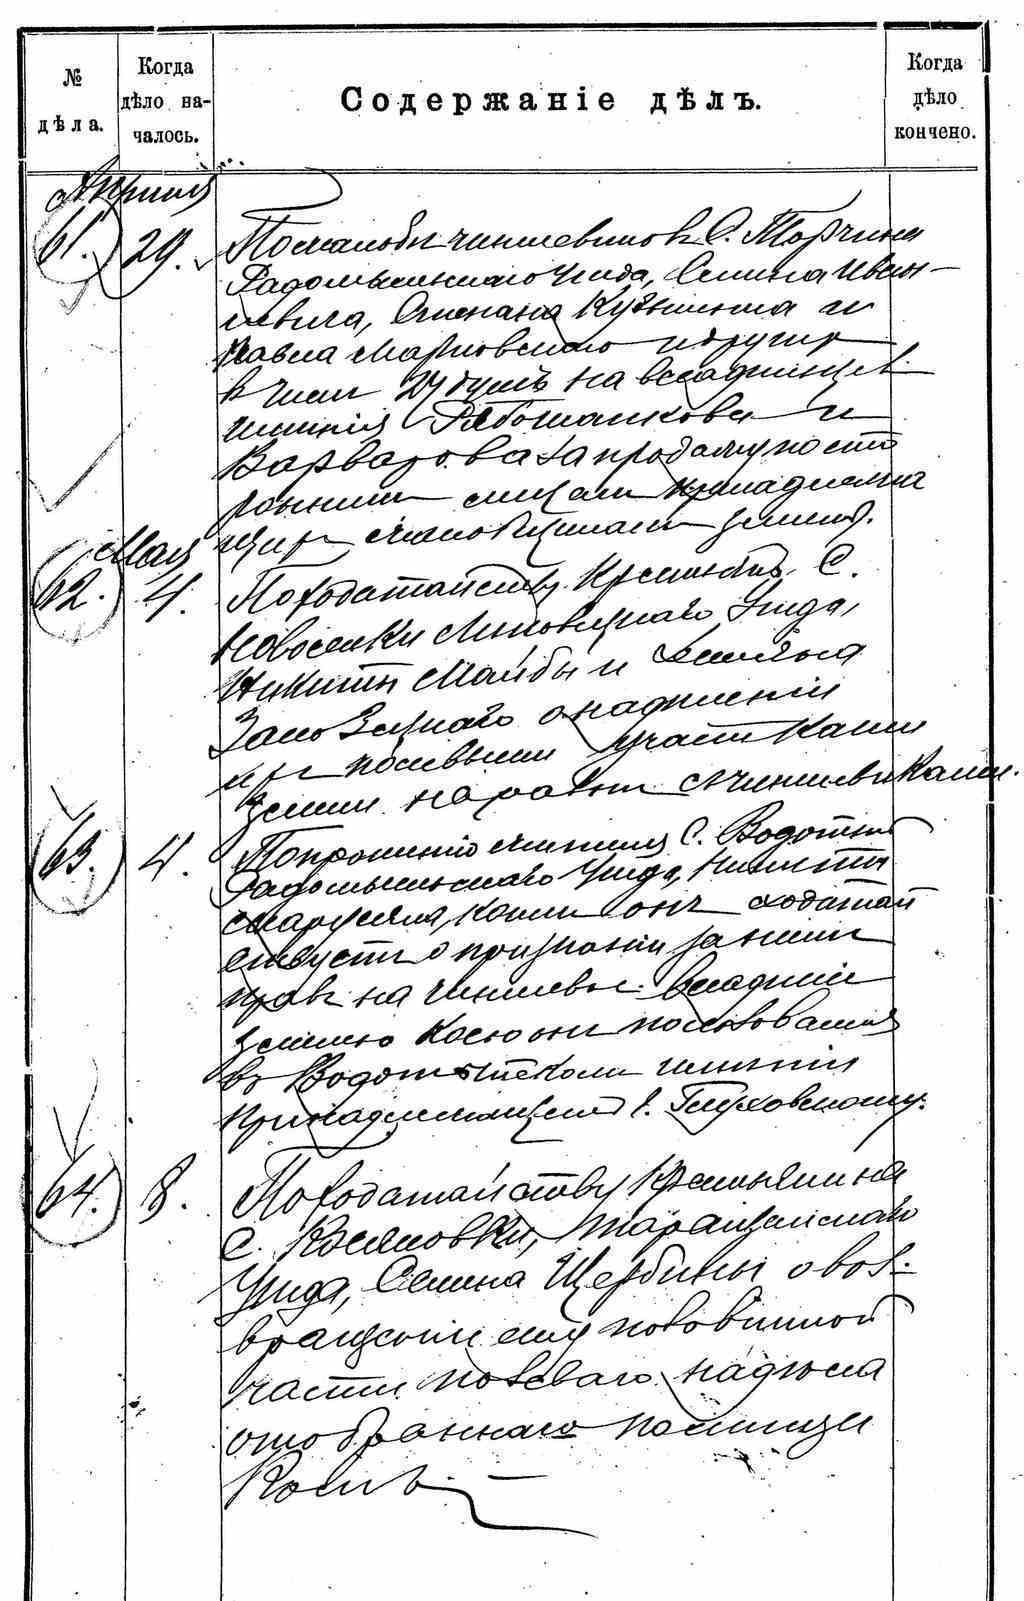 № дѣла.
Когда дѣло на-
чалось.
Содержаніе дѣлъ.
Когда дѣло кончено.
Апрѣля
61. 29. По жалобѣ чиншевиковъ С. Торчина
Радомысльскаго Уѣзда, Семена
Степана Кузьмина и
Павла Марковскаго и другихъ
въ числѣ 27 душъ на владѣльцевъ
имѣнія Рябошапкова и
Варварова за продажу посто
роннимъ лицамъ принадлежа
щихъ чиншевикамъ земель.
Мая
62. 4. По ходатайству Крестьянъ С.
Новоселки Липовецкаго Уѣзда,
Никиты Майбы и
Заозернаго о надѣленіи
ихъ полевыми участками
земли наравнѣ съ чиншевиками.
63. 4. По прошенію жителя С. Водотый
Радомысльскаго Уѣзда, Никиты
коимъ онъ ходатай
ствуетъ о признаніи за нимъ
правъ на чиншевое владѣніе
землею коею онъ пользовался
въ Водотыйскомъ имѣніи
принадлежащемъ г. Глуховскому.
64. 8. По ходатайству Крестьянина
С. Косяковки, Таращанскаго
Уѣзда, Семена Щербины о воз-
вращеніи ему половинной
части полеваго надѣла
отобраннаго помѣщи
комъ. —